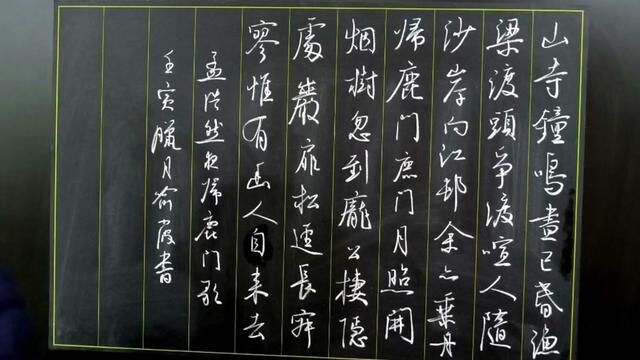 山寺鐘鳴晝已昏漁
梁渡頭爭渡喧人隨
沙岸向江邨余亦乘舟
帰鹿門鹿门月照開
烟樹忽到龐公棲隱
處巖扉松逕長寂
寥惟有幽人自来去
孟浩然夜帰鹿门歌
壬寅臘月俞霞書